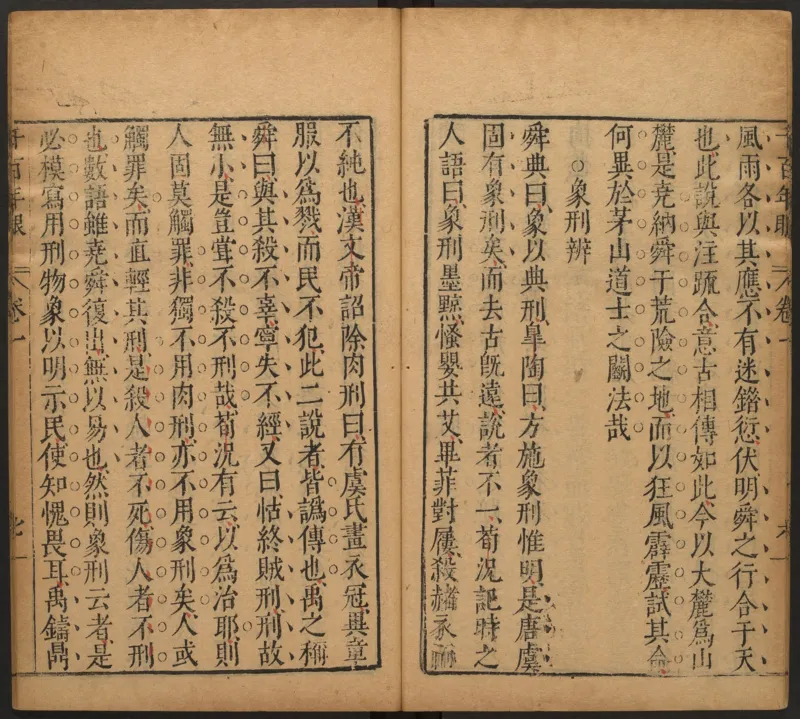 風雨各以其應不有迷錯愆伏明舜之行合于天
也此說與注疏合意古相傳如此今以大麓爲山
麓是堯納舜于荒險之地而以狂風霹靂試其命
何異於茅山道士之鬬法哉
○象刑辨
舜典曰象以典刑皐陶曰方施象刑惟明是唐虞
固有象刑矣而去古旣遠說者不一荀况記時之
人語曰象刑墨黥慅嬰共艾畢菲對屨殺赭衣而
不純也漢文帝詔除肉刑曰有虞氏畫衣冠異章
服以爲戮而民不犯此二說者皆譌傳也禹之稱
舜曰與其殺不辜寧失不經又曰怙終賊刑刑故
無小是豈嘗不殺不刑哉荀况有云以爲治耶則
人固莫觸罪非獨不用肉刑亦不用象刑矣人或
觸罪矣而直輕其刑是殺人者不死傷人者不刑
也數語雖堯舜復出無以易也然則象刑云者是
必模寫用刑物象以明示民使知愧畏耳禹鑄鼎
千百年眼 卷一